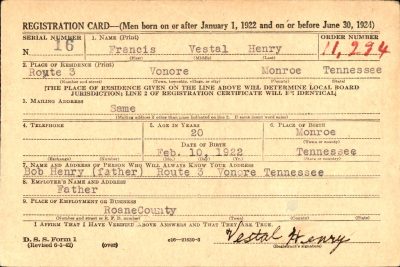 REGISTRATION CARD—(Men born on or after January 1, 1922 and on or before June 30, 1924)
SERIAL NUMBER 1. NAME (Print) ORDER NUMBER
N 16 Francis Vestal Henry 11,294
(First) (Middle) (Last)
2. PLACE OF RESIDENCE (Print)
Route 3 Vonore Monroe Tennessee
(Number and street) (Town, township, village, or city) (County) (State)
[THE PLACE OF RESIDENCE GIVEN ON THE LINE ABOVE WILL DETERMINE LOCAL BOARD
JURISDICTION; LINE 2 OF REGISTRATION CERTIFICATE WILL BE IDENTICAL]
3. MAILING ADDRESS
Same
[Mailing address if other than place indicated on line 2. If same insert word same]
4. TELEPHONE 5. AGE IN YEARS 6. PLACE OF BIRTH
20 Monroe
DATE OF BIRTH (Town or county)
Feb. 10, 1922 Tennessee
(Exchange) (Number) (Mo.) (Day) (Yr.) (State or country)
7. NAME AND ADDRESS OF PERSON WHO WILL ALWAYS KNOW YOUR ADDRESS
Bob Henry (father) Route 3 Vonore Tennessee
8. EMPLOYER'S NAME AND ADDRESS
Father
9. PLACE OF EMPLOYMENT OR BUSINESS
RoaneCounty
(Number and street or R. F. D. number) (Town) (County) (State)
I AFFIRM THAT I HAVE VERIFIED ABOVE ANSWERS AND THAT THEY ARE TRUE.
D. S. S. Form 1
(Revised 6-1-42) (over) Vestal Henry
(Registrant's signature)